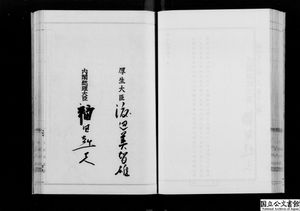 厚生大臣 渡辺美智雄
内閣総理大臣 福田赳夫
国立公文書館
National Archives of Japan